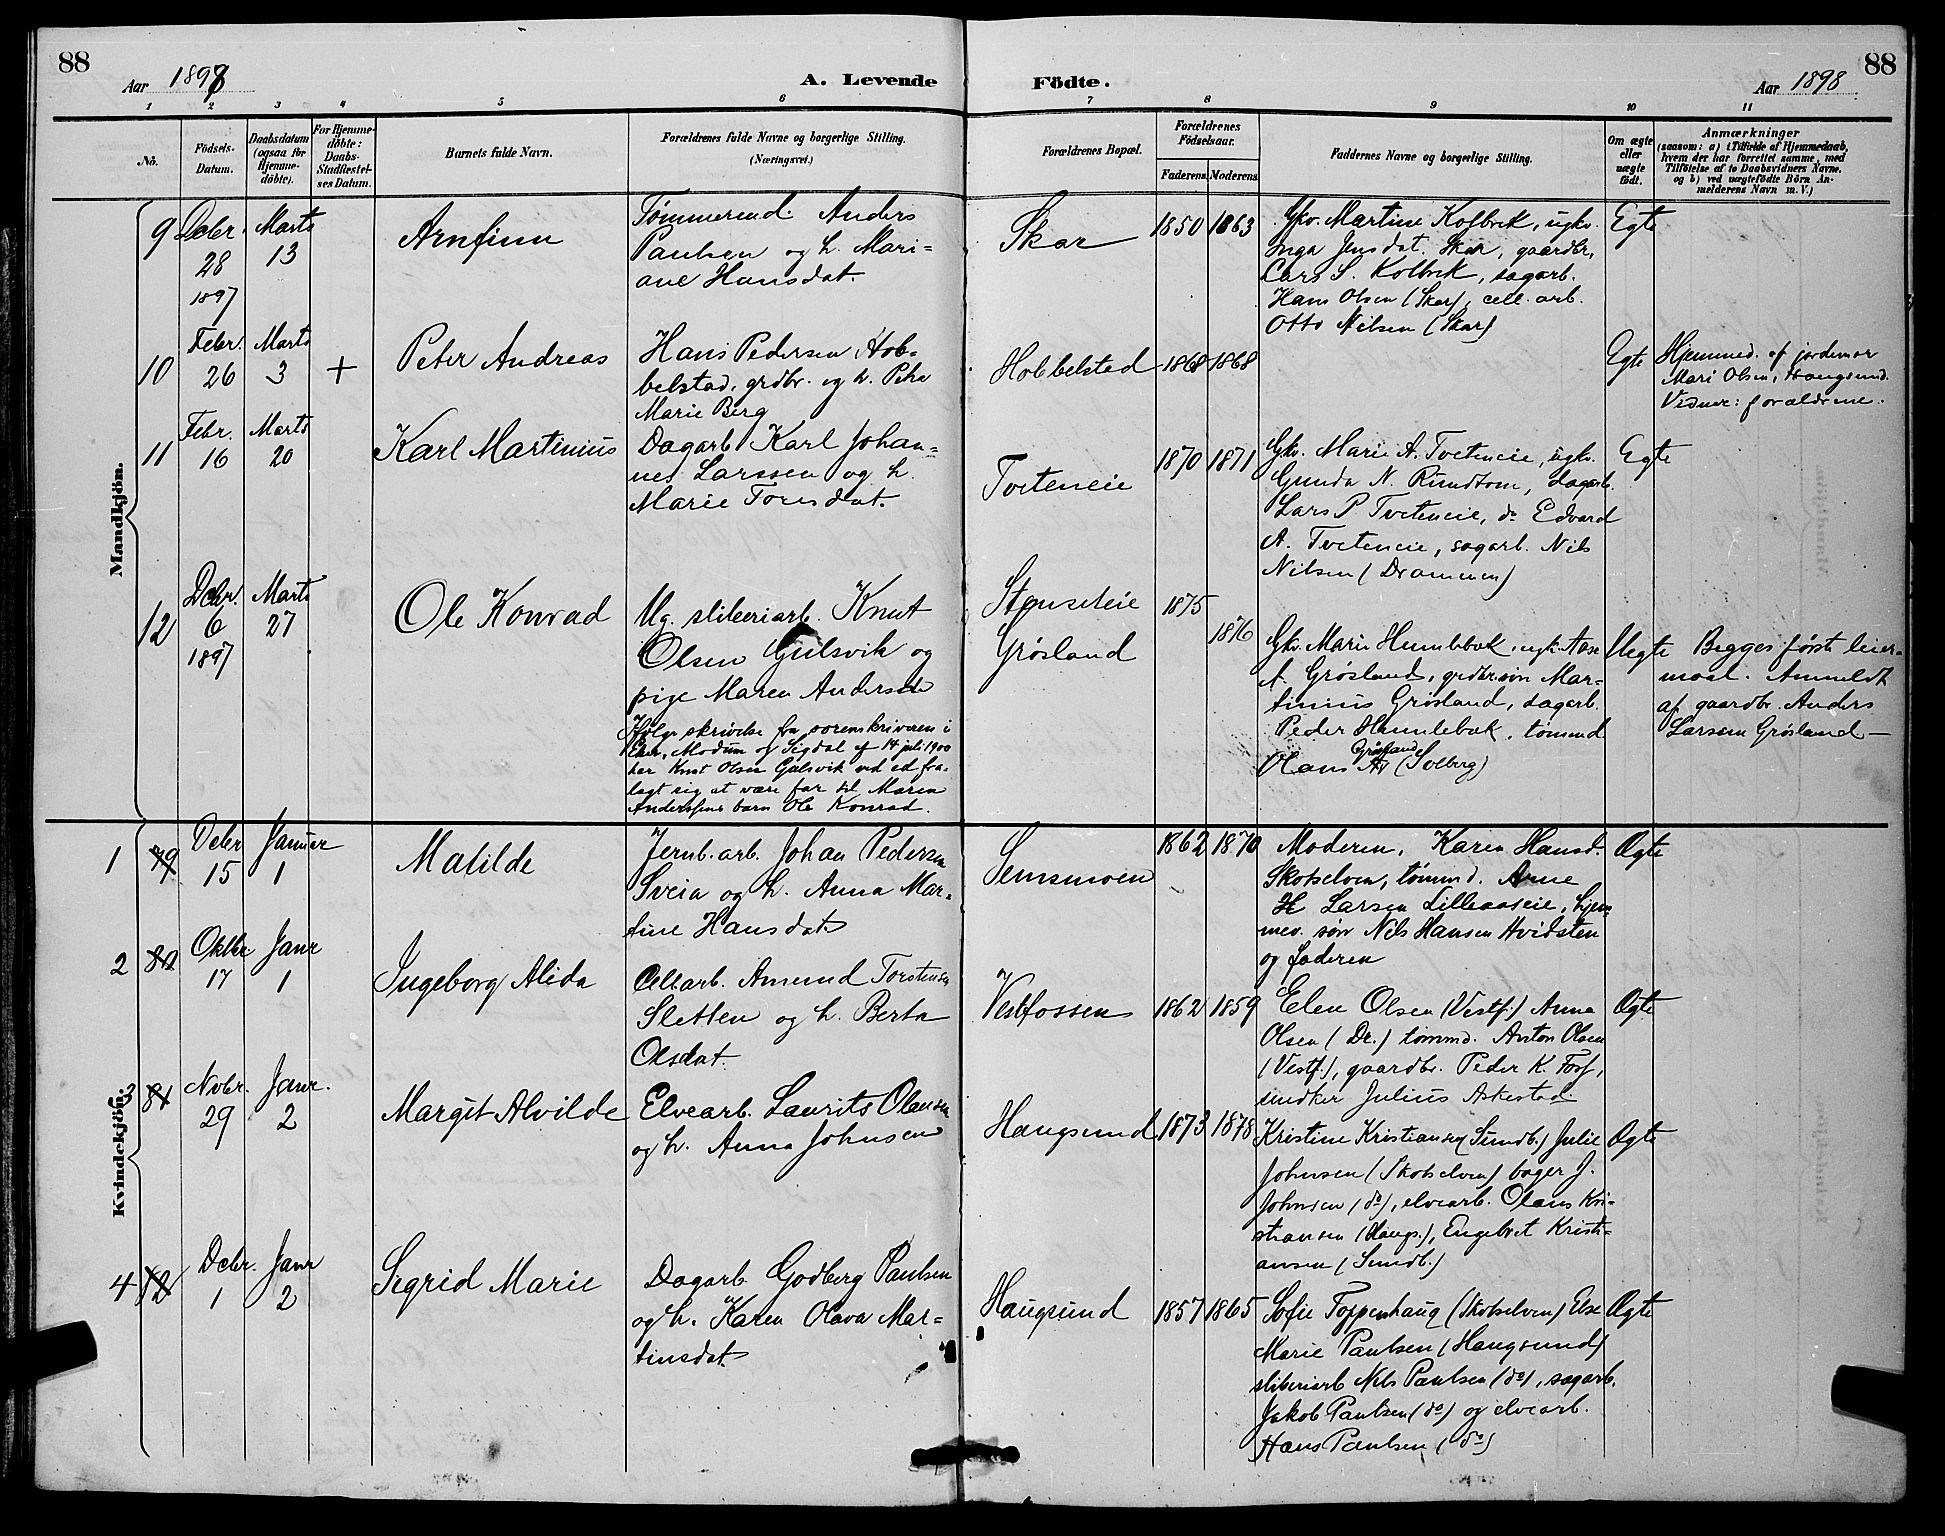 88
Aar 1898
A. Levende
Födte.
Aar 1898
88
1 2 3 4 5 6 7 8 9 10 11
No.
Födsels-
Datum.
Daabsdatum
(ogsaa for
Hjemme-
döbte).
For Hjemme-
döbte:
Daabs-
Stadfæstel-
ses Datum.
Barnets fulde Navn.
Forældrenes fulde Navne og borgerlige Stilling.
(Næringsvei.)
Forældrenes Bopæl.
Forældrenes
Födselsaar.
Faderens.
Moderens.
Faddernes Navne og borgerlige Stilling.
Om ægte
eller
uægte
födt.
Anmærkninger
(saasom: a) i Tilfælde af Hjemmedaab,
hvem der har forrettet samme, med
Tilföielse af to Daabsvidners Navne.
og b) ved uægtefödte Börn An-
melderens Navn m. V.)
Mandkjön.
9
Debr.
28
1897
Marts
13
Arnfinn
Tømmermd. Anders
Paulsen og h. Mari-
ane Hansdat.
Skar
1850
1863
Gkv. Martine Kolbrek, ugkv.
Inga Jensdat. Skar, gaardbr.
Lars S. Kolbrek, sagarb.
Hans Olsen (Skar), cell. arb.
Otto Nilsen (Skar)
Egte
10
Febr.
26
Marts
3
+
Peter Andreas
Hans Pedersen Hob-
belstad, grdbr. og h. Petra
Marie Berg
Hobbelstad
1868
1868
Egte
Hjemmed. af jordemor
Mari Olsen, Haugsund.
Vidner: forældrene.
11
Febr.
16
Marts
20
Karl Martinius
Dagarb Karl Johan-
nes Larssen og h.
Marie Toresdat.
Tveteneie
1870
1871
Gkv. Marie A. Tveteneie, ugkv.
Gunda N. Rundtom, dagarb.
Lars P Tveteneie, do Edvard
A. Tveteneie, sagarb. Nils
Nilsen (Drammen)
Egte
12
Debr.
6
1897
Marts
27
Ole Konrad
Ug. sliberiarb. Knut
Olsen Gulsvik og
pige Maren Andersdr
Ifølge skrivelse fra sorenskriveren i
Eker, Modum og Sigdal af 14 juli 1900
har Knut Olsen Gulsvik ved ed fra-
lagt sig at være far til Maren
Anderssens barn Ole Konrad.
Stenseteie
Grøsland
1875
1876
Gkv. Marie Humlebæk, ugk. Aase
A. Grøsland, grdbrsøn Mar-
tinius Grøsland, dagarb.
Peder Humlebæk, tømmd
Grøsland
Olaus (Solberg)
Uegte
Begges første leier-
maal. Anmeldt
af gaardbr. Anders
Larsen Grøsland —
Kvindekjön.
1
79
Debr
15
Januar
1
Matilde
Jernb. arb. Johan Pedersen
Sveia og h. Anna Mar-
tine Hansdat
Semsmoen
1862
1870
Moderen, Karen Hansd.
Skotselven, tømmd. Arne
H Larsen Lilleaaseie, hjem-
mev. søn Nils Hansen Hvidsten
og faderen
Ægte
2
80
Oktbr.
17
Janr
1
Ingeborg Alida
Cellarb. Amund Torstensen
Sletten og h. Berta
Olsdat.
Vestfossen
1862
1859
Elen Olsen (Vestf.) Anna
Olsen (Dr.) tømmd. Anton Olsen
(Vestf.), gaardbr. Peder K. Fosf,
snedker Julius Askestad.
Ægte
3
81
Novbr.
29
Janr.
2
Margit Alvilde
Elvearb. Laurits Olausen
og h. Anna Johnsen
Haugsund
1873
1878
Kristine Kristiansen (Sundb.) Julie
Johnsen (Skotselven) bager J.
Johnsen (do), elvearb. Olaus Kri-
stiansen (Haugs.), Engebret Kristi-
ansen (Sundb.)
Ægte
4
82
Debr.
1
Janr
2
Sigrid Marie
Dagarb. Godberg Paulsen
og h. Karen Olava Mar-
tinsdat.
Haugsund
1857
1865
Sofie Toppenhaug (Skotselven) Else
Marie Paulsen (Haugsund)
sliberiarb Nils Paulsen (do), sagarb.
Jakob Paulsen (do) og elvearb.
Hans Paulsen (do)
Ægte